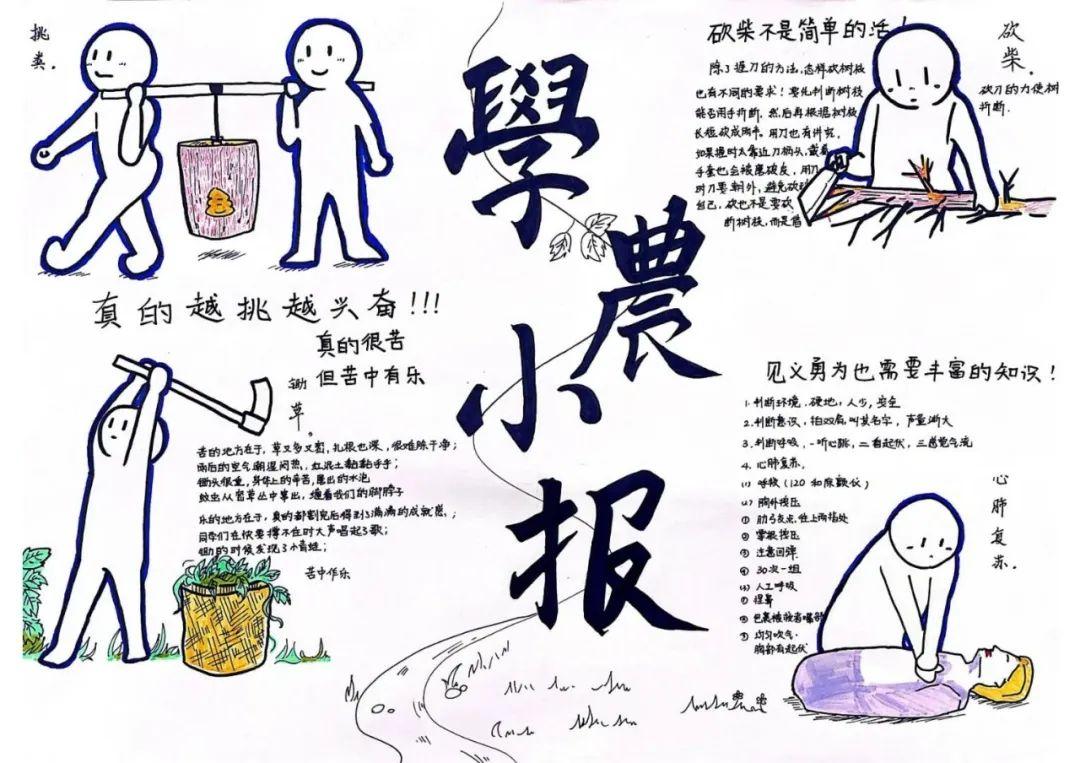 挑
粪.
真的越挑越兴奋!!!
真的很苦
但苦中有乐
锄
草。
苦的地方在于,草又多又密,扎根也深,很难除干净;
雨后的空气潮湿闷热,红泥土黏黏乎乎;
锄头很重,身体上的辛苦,磨出的水泡
蚊虫从密草丛中窜出,缠着我们的脚脖子
乐的地方在于,真的都割完后得到了满满的成就感;
同学们在快要撑不住时大声唱起了歌;
锄的时候发现了小青蛙;
苦中作乐
學
農
小
报
砍柴不是简单的活!
砍
柴.
砍刀的力使树
折断.
除了握刀的方法,怎样砍树枝
也有不同的要求!要先判断树枝
能否用手折断,然后再根据树枝
长短砍成两半。用刀也有讲究,
如果握时太靠近刀柄头,戴着
手套也会被磨破皮,用刀
时刀要朝外,避免砍到
自己,砍也不是要砍
断树枝,而是借
见义勇为也需要丰富的知识!
1.判断环境.硬地,人少,安全
2.判断意识,拍双肩叫其名字,声量渐大
3.判断呼吸,一听心跳,二看起伏,三感觉气流
4.心肺复苏.
(1)呼救(120和除颤仪)
(2)胸外按压
①肋弓交点,往上两指处
②掌根按压
③注意回弹.
④30次一组
(3)人工呼吸
①捏鼻
②包裹被救者嘴部
③均匀吹气.
胸部有起伏
心
肺
复
苏.